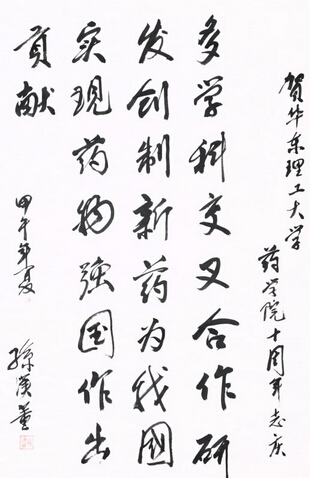 贺华东理工大学
药学院十周年志庆
多学科交叉合作研
发创制新药为我國
实现药物强国作出
贡献
甲午年夏
孙汉董